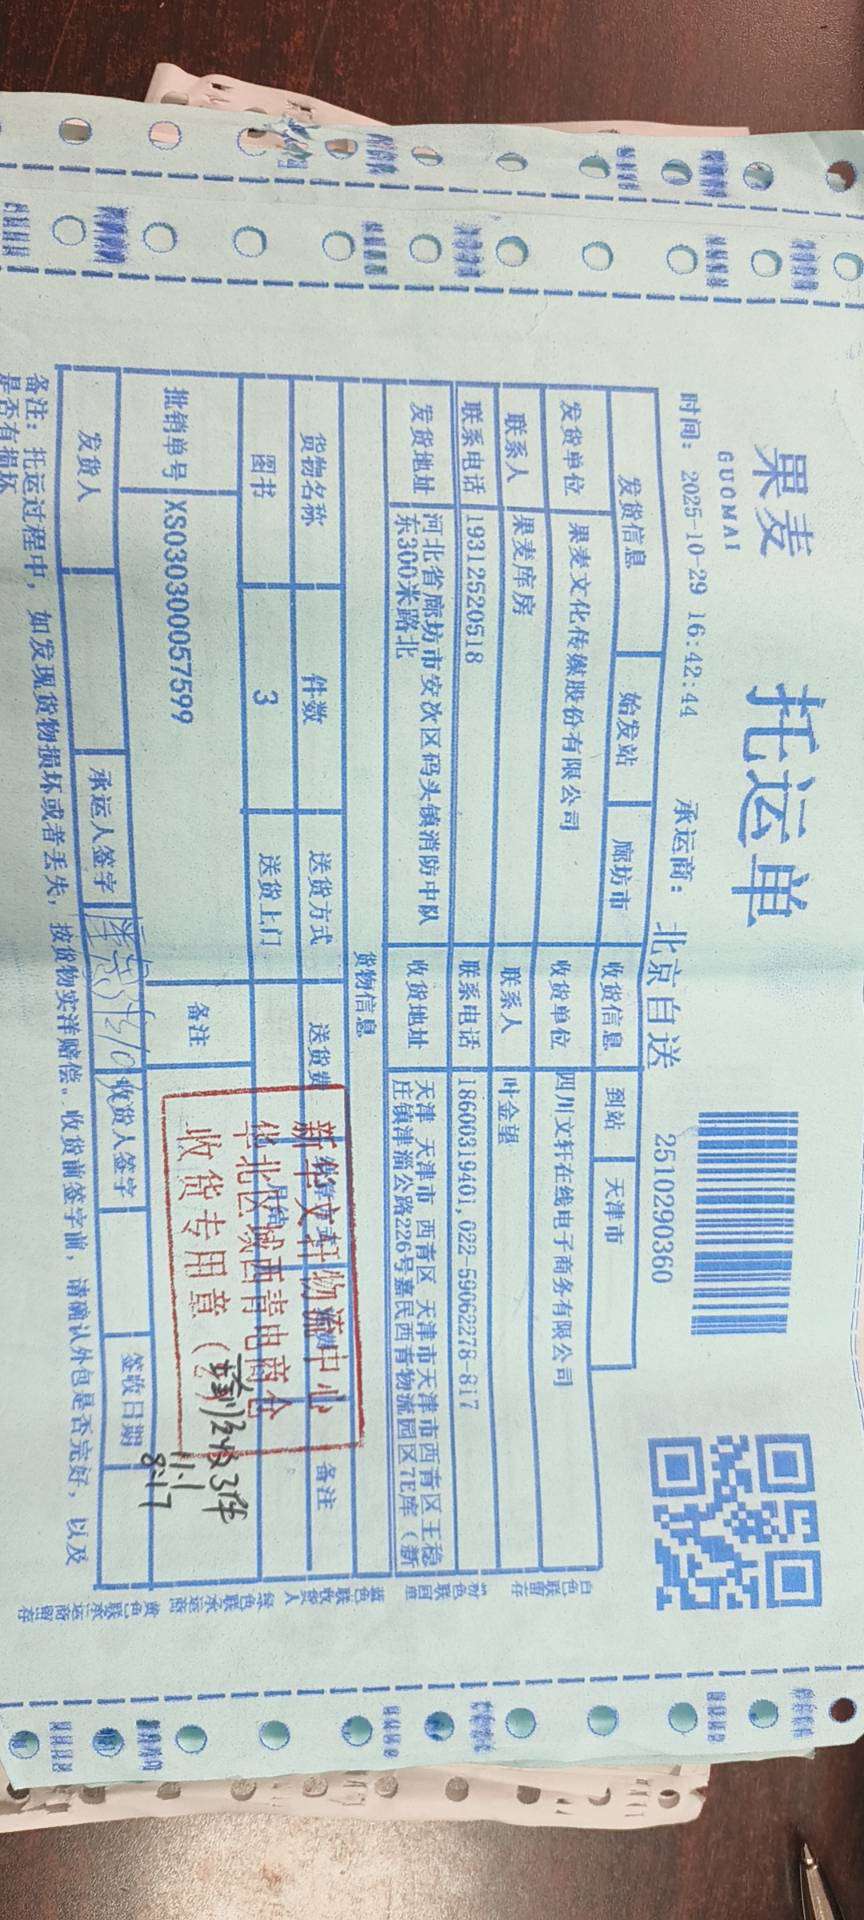 果麦
GUOMAI
托运单
2510290360
时间: 2025-10-29 16:42:44 承运商: 北京自送
发货信息 始发站 廊坊市 收货信息 到站 天津市
发货单位 果麦文化传媒股份有限公司 收货单位 四川文轩在线电子商务有限公司
联系人 果麦库房 联系人 叶金望
联系电话 19312520518 联系电话 18600319401,022-59062278-817
发货地址 河北省廊坊市安次区码头镇消防中队
东300米路北
收货地址 天津 天津市 西青区 天津市天津市西青区王稳
庄镇津淄公路226号嘉民西青物流园区7E库（新
货物信息
货物名称 件数 送货方式 送货费 备注
图书 3 送货上门
批销单号 XS030300057599 备注
新华文轩物流中心
华北区域西青电商仓
收货专用章
实收3件
11.1
8:17
发货人 承运人签字 收货人签字 签收日期
备注: 托运过程中，如发现货物损坏或者丢失，按货物实洋赔偿。收货前签字前，请确认外包是否完好，以及
是否有损坏
白色联留存
粉色联回单
蓝色联收货人
绿色联承运商
黄色联承运商留存